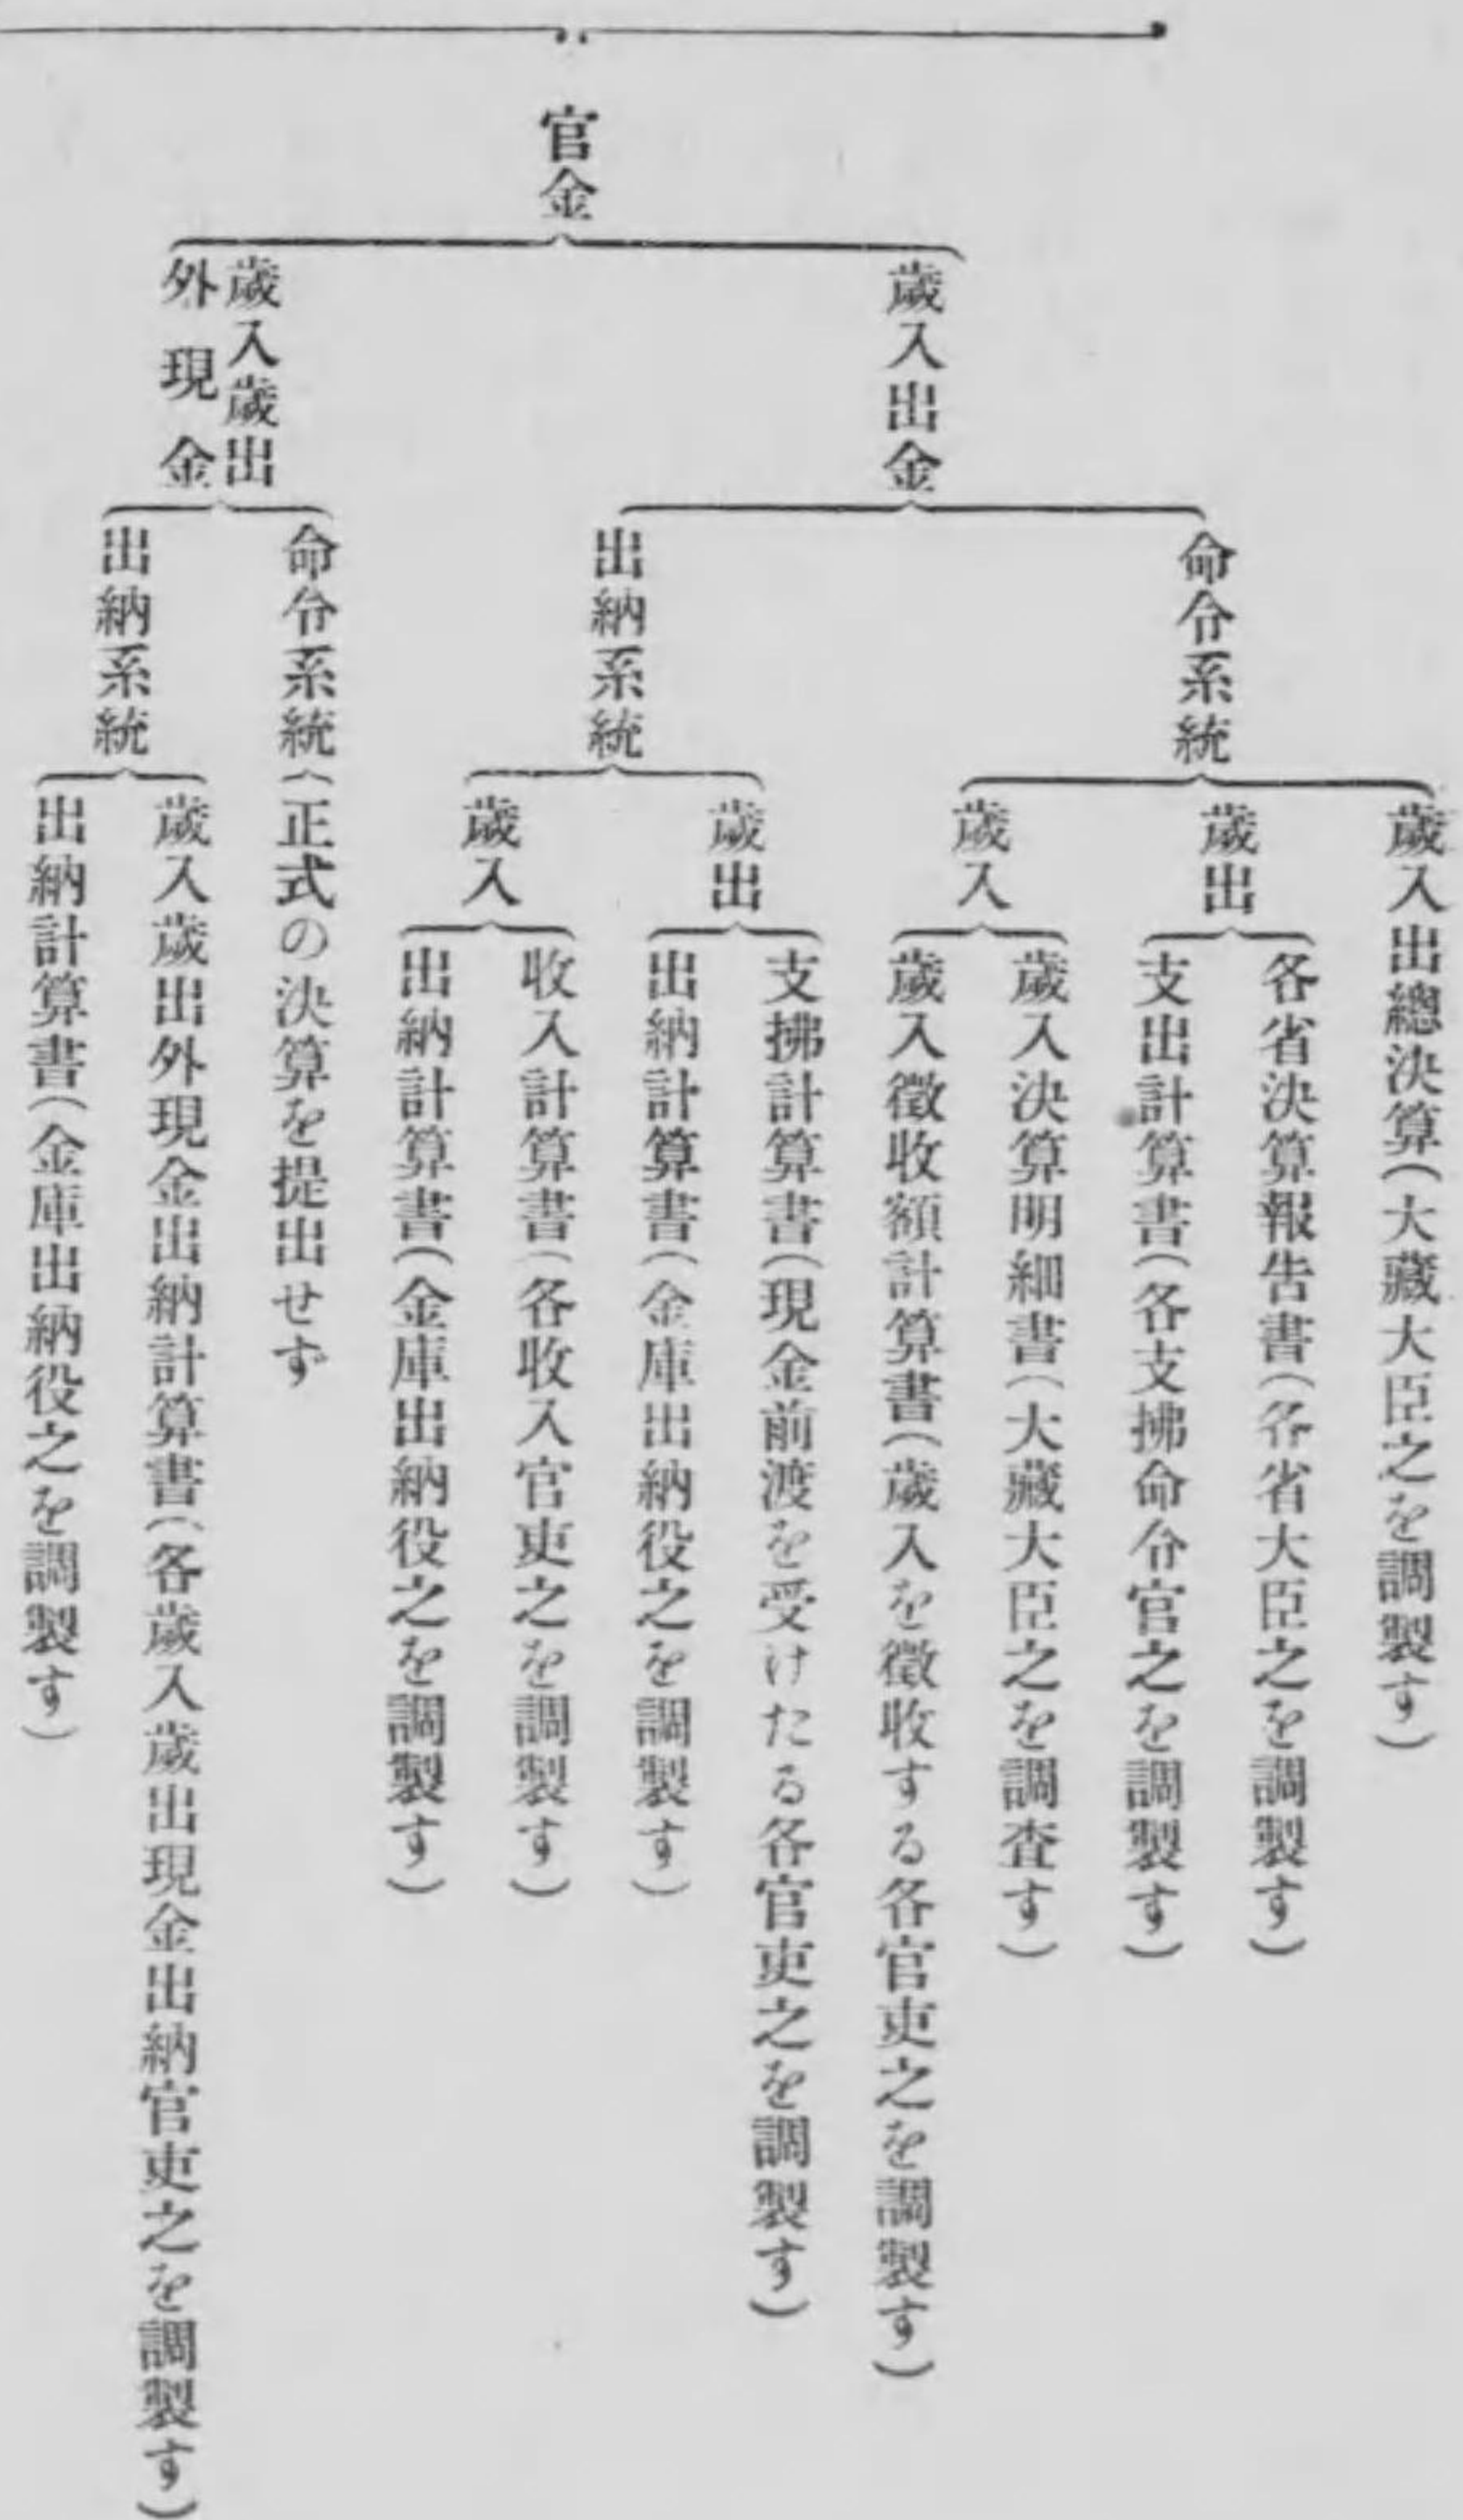 官金
歲入出金
命令系統
歲入出總決算(大藏大臣之を調製す)
歲出
各省決算報告書(各省大臣之を調製す)
支出計算書(各支拂命令官之を調製す)
歲入
歲入決算明細書(大藏大臣之を調査す)
歲入徵收額計算書(歲入を徵收する各官吏之を調製す)
出納系統
歲出
支拂計算書(現金前渡を受けたる各官吏之を調製す)
出納計算書(金庫出納役之を調製す)
歲入
收入計算書(各收入官吏之を調製す)
出納計算書(金庫出納役之を調製す)
歲入歲出
外現金
命令系統(正式の決算を提出せず
出納系統
歲入歲出外現金出納計算書(各歲入歲出現金出納官吏之を調製す)
出納計算書(金庫出納役之を調製す)